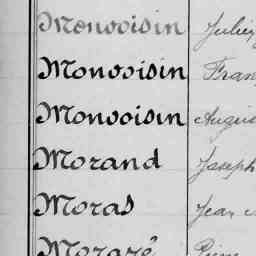 Monvoisin Julien
Monvoisin Fran
Monvoisin Augus
Morand Joseph
Moras Jean
Moraré Pierre